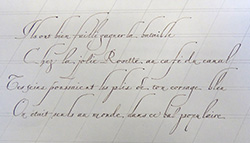 Ils ont bien failli gagner la bataille
Chez la jolie Rosette au café du canal
Tes seins poussaient les plis de ton corsage bleu
On était seuls au monde dans ce bal populaire